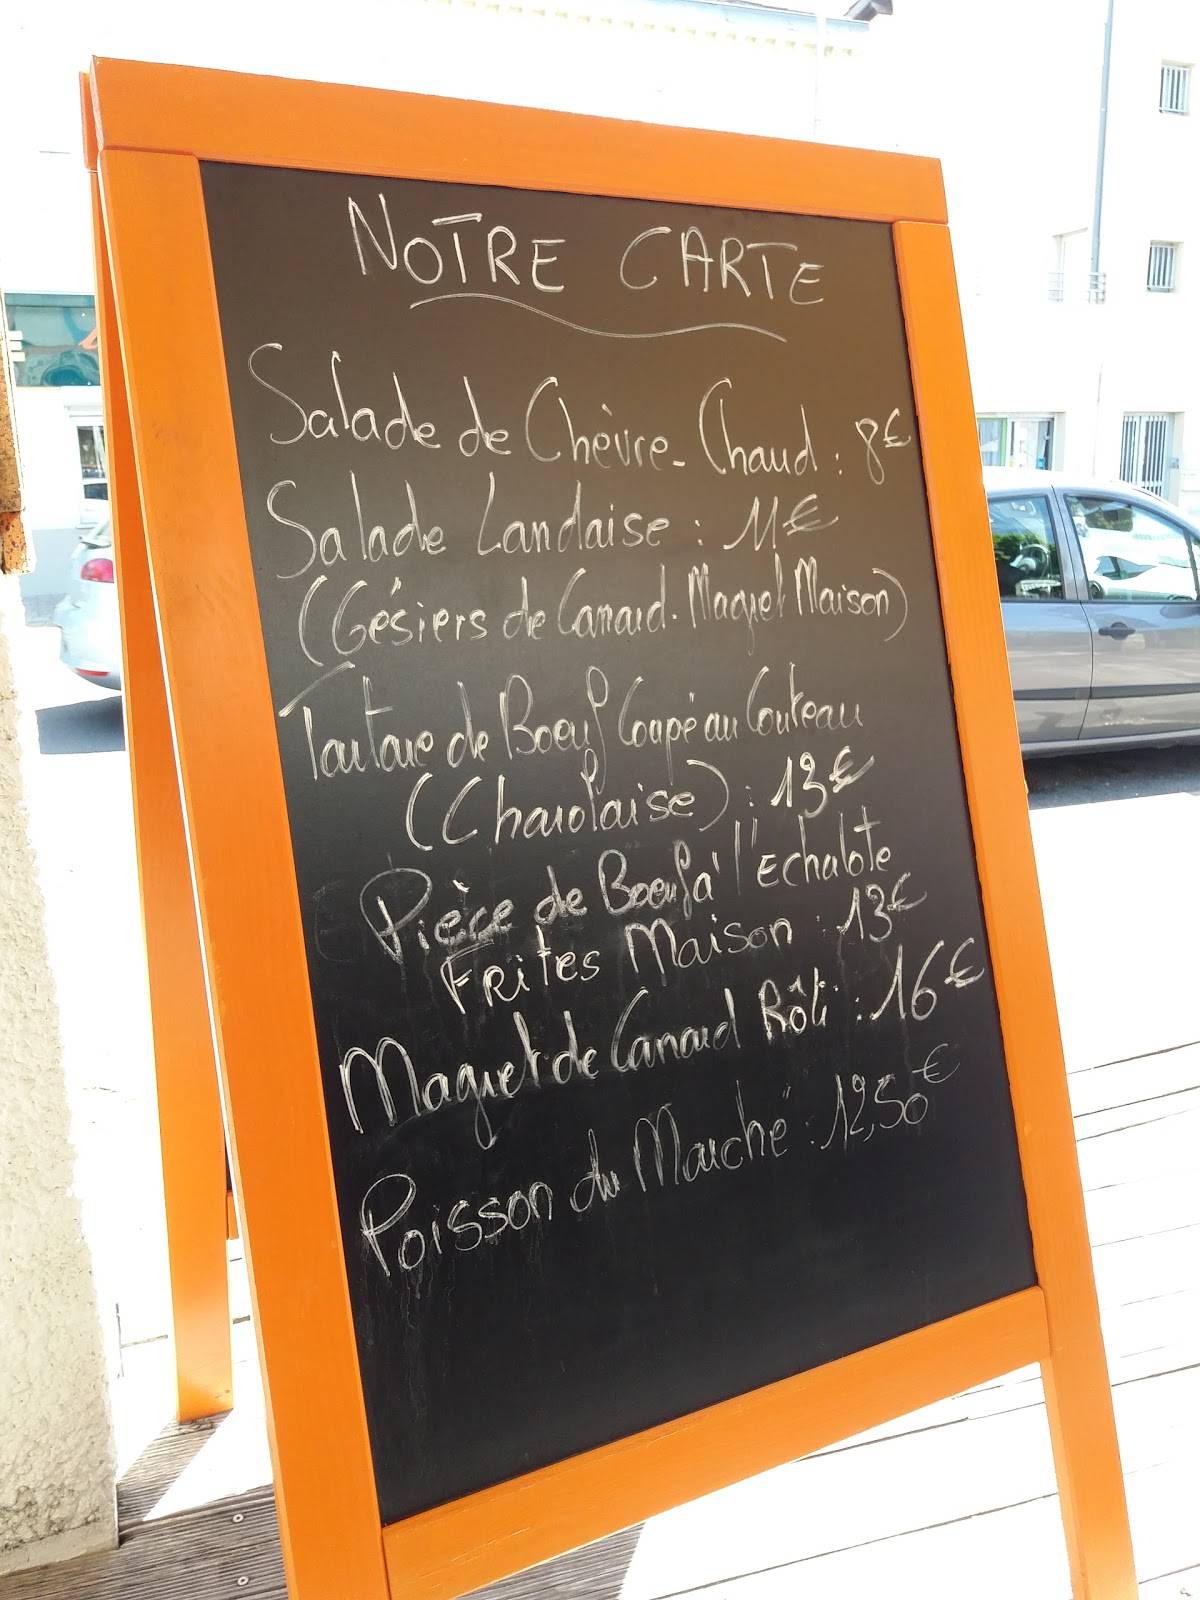 NOTRE CARTE
Salade de Chèvre-Chaud : 8€
Salade Landaise : 11€
(Gésiers de Canard. Magret Maison)
Tartare de Boeuf Coupé au Couteau
(Charolaise) : 13€
Pièce de Boeuf à l'Echalote
FRites Maison : 13€
Magret de Canard Rôti : 16€
Poisson du Marché : 12,50€